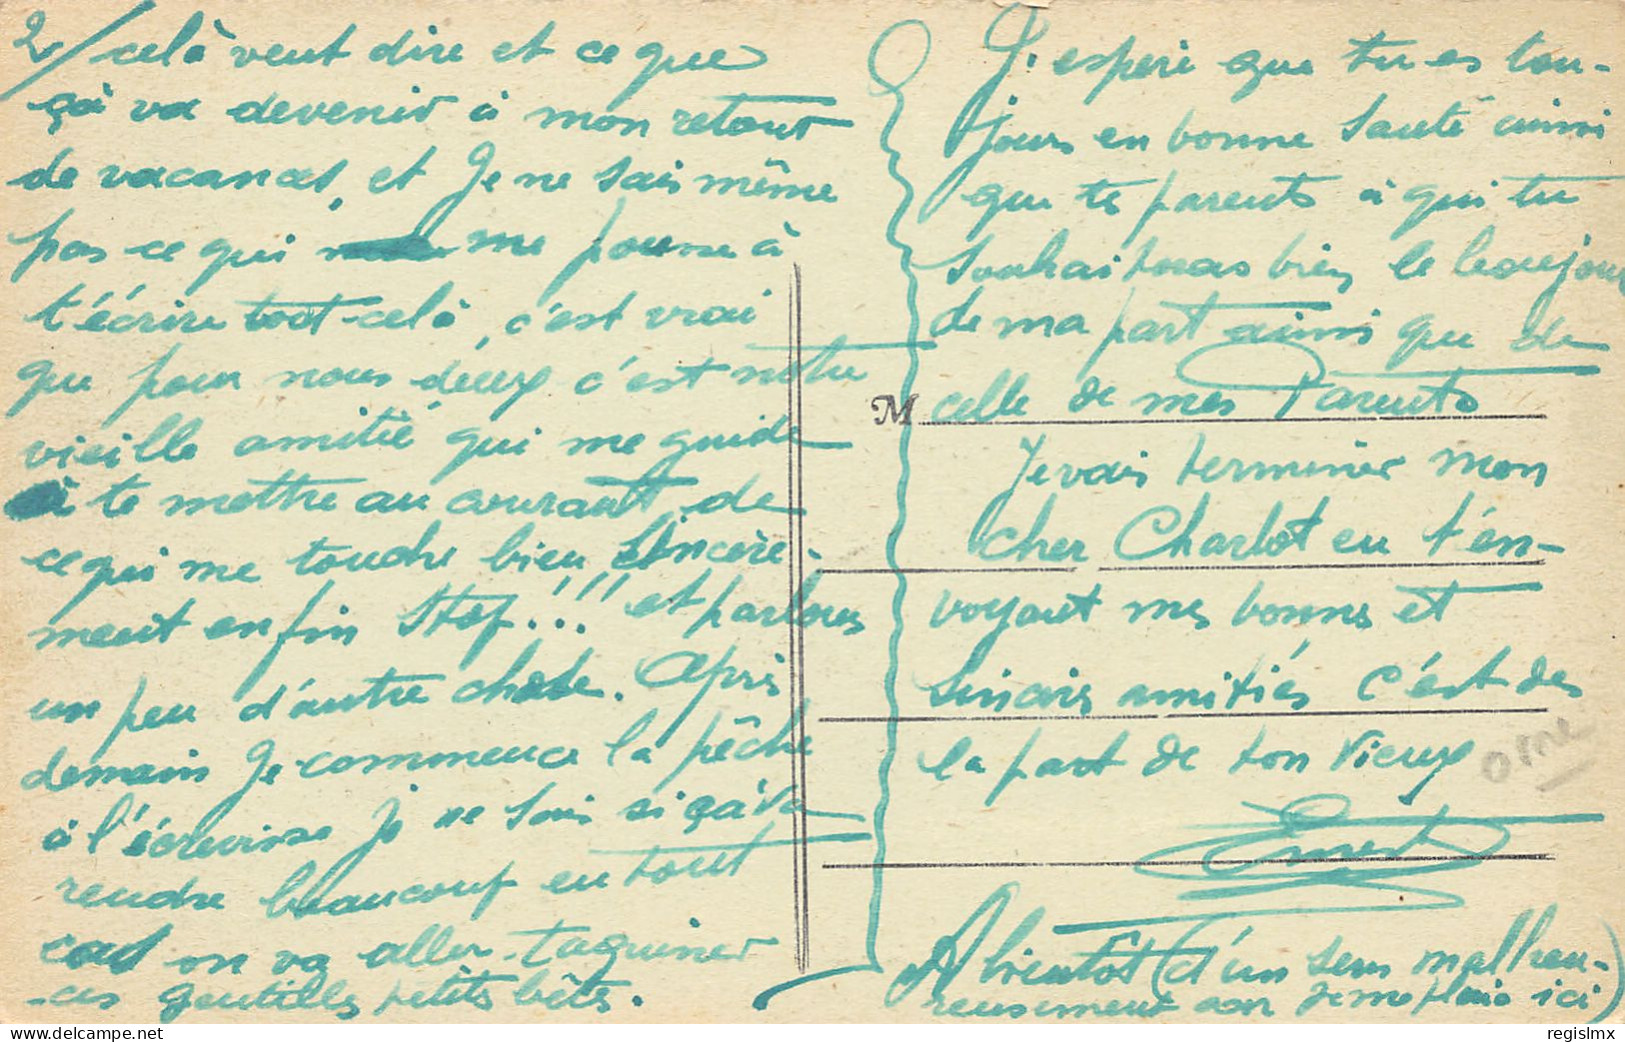 2/ celà veut dire et ce que
çà va devenir à mon retour
de vacances, et Je ne sais même
pas ce qui me pousse à
t'écrire tout celà, c'est vrai
que pour nous deux c'est notre
vieille amitié qui me guide
à te mettre au courant de
ce qui me touche bien sincère-
ment enfin Stop!!! et parlons
un peu d'autre chose. Après
demain Je commence la pêche
à l'écrevisse Je ne sais si çà va
rendre beaucoup en tout
cas on va aller taquiner
ces gentilles petits bêtes.
J'espère que tu es tou-
jours en bonne Santé ainsi
que tes parents à qui tu
Souhaiteras bien le bonjour
de ma part ainsi que de
M celle de mes Parents
Je vais terminer mon
cher Charlot en t'en-
voyant mes bonnes et
sincères amitiés c'est de
la part de ton Vieux
Ernest
A bientôt (d'un sens malheu-
reusement car Je me plais ici)
orne
regislmx